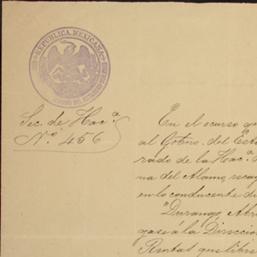 REPUBLICA MEXICANA
Sec. de Hac.ª
Nº 456
En el ocurso q
al Gobno. del Est
rado de la Hac.ª
na del Alamo recay
en lo conducente d
"Durango, Abr
gase á la Direccio
Rentas que libr